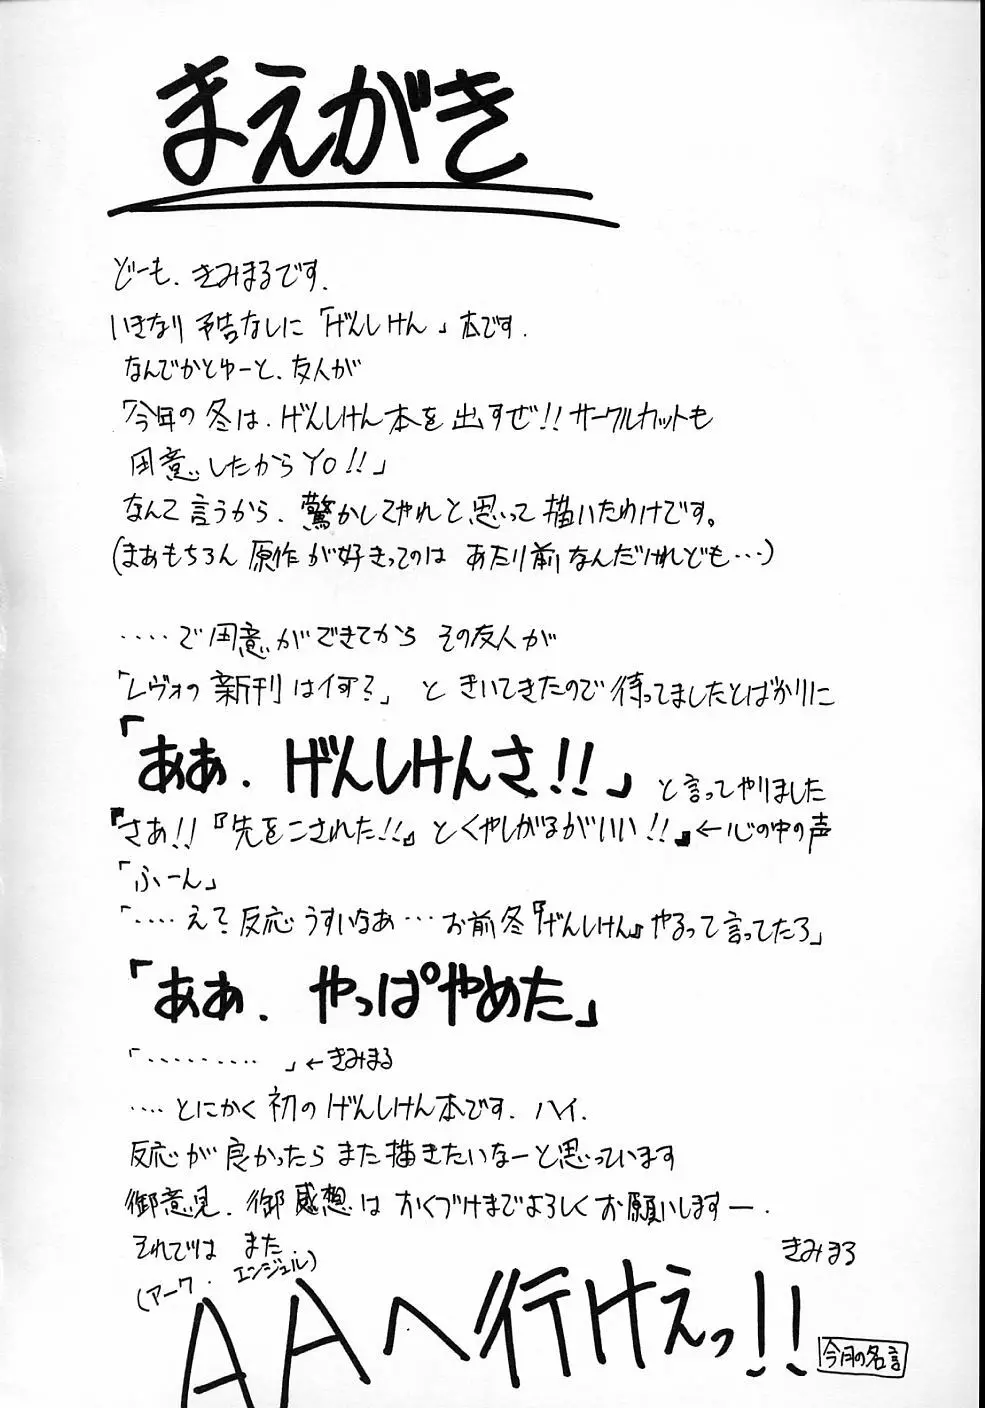 まえがき
どーも、きみまるです.
いきなり予告なしに「げんしけん」本です.
なんでかとゆーと、友人が
「今年の冬は、げんしけん本を出すぜ!!サークルカットも
用意したからYO!!」
なんて言うから、驚かしてやれと思って描いたわけです。
(まあもちろん原作が好きってのはあたり前なんだけれども…)
‥‥で用意ができてからその友人が
「レヴォの新刊は何?」ときいてきたので待ってましたとばかりに
「ああ、げんしけんさ!!」と言ってやりました
『さあ!!『先をこされた!!』とくやしがるがいい!!』←心の中の声
「ふーん」
「‥‥えて?反応うすいなあ…お前冬『げんしけん』やるって言ってたろ」
「ああ、やっぱやめた」
「‥‥‥‥‥」←きみまる
‥‥とにかく初のげんしけん本です.ハイ.
反応が良かったらまた描きたいなーと思っています
御意見、御感想はかくづけまでよろしくお願いしますー.
それではまた
きみまる
(アーク・エンジェル)
AAへ行けえっ!!
今月の名言